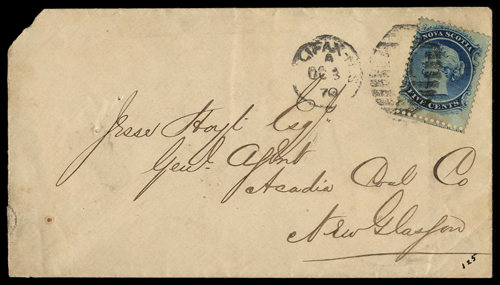 NOVA SCOTIA
FIVE CENTS
A
70
Jesse Hoyt Esqr
Genl. Agent
Acadia Coal Co
New Glasgow
125